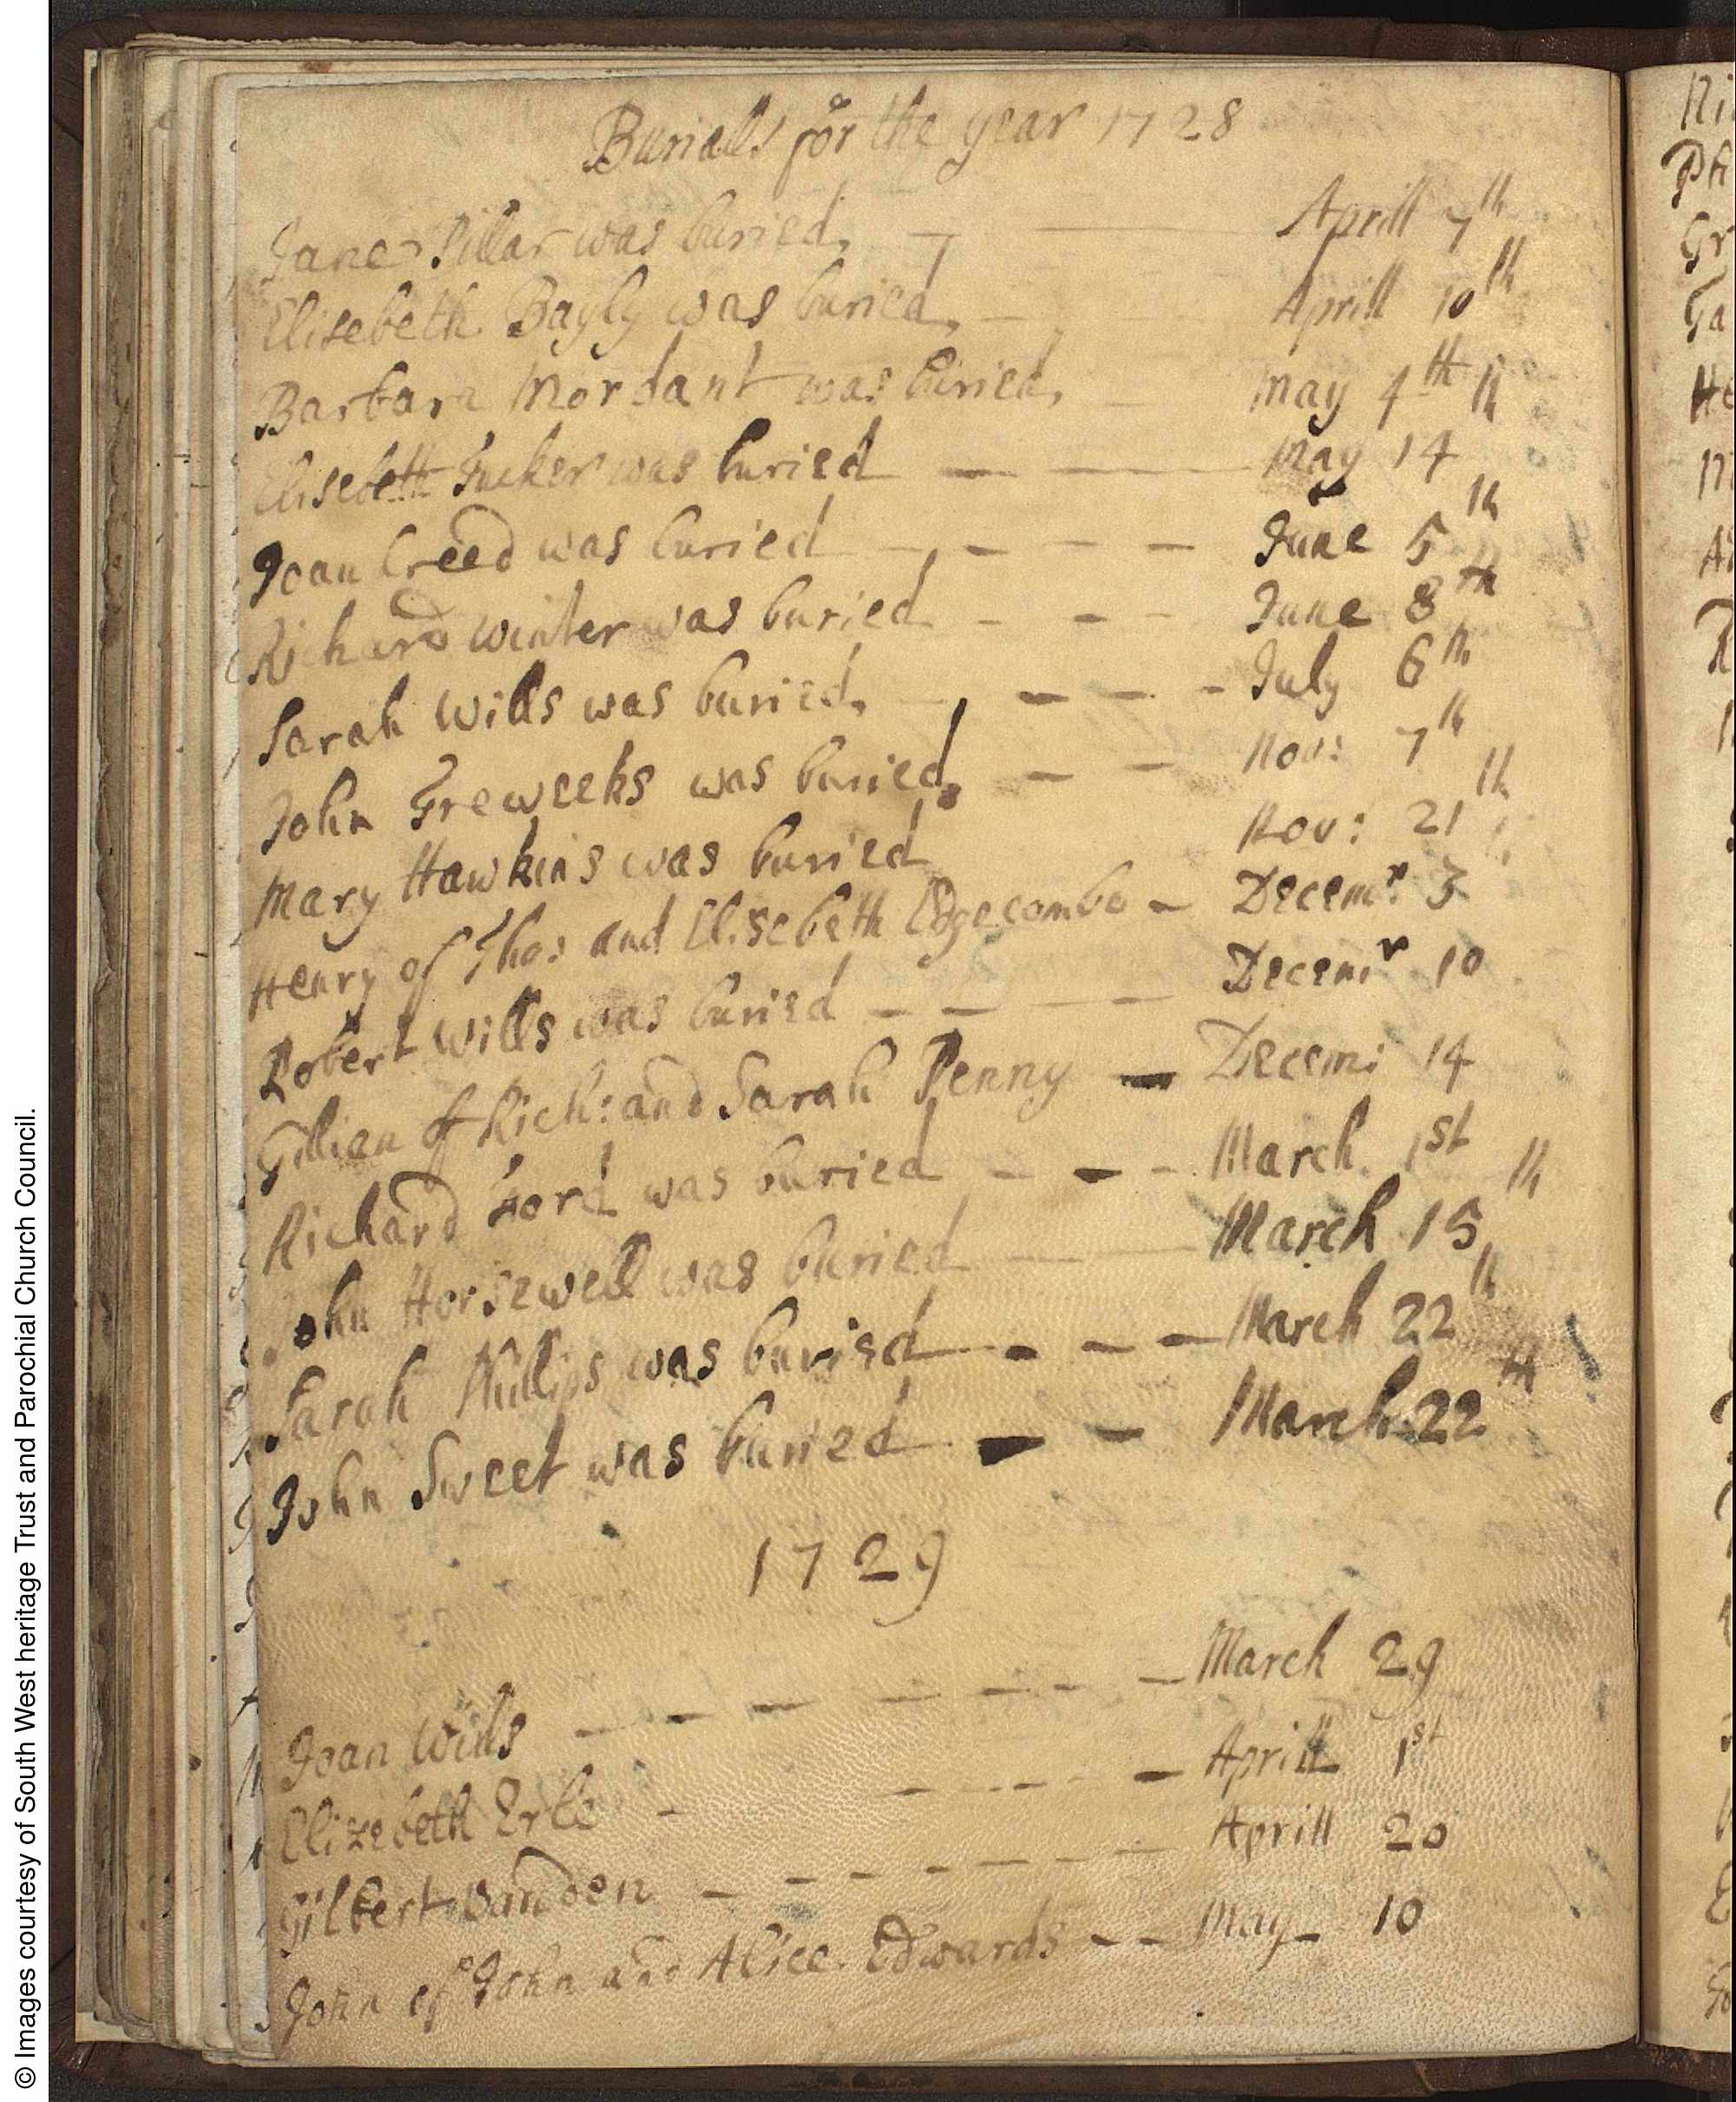 Burialls for the year 1728
Jane Pillar was buried, — — Aprill 7th
Elisebeth Bayly was buried, — Aprill 10th
Barbara Mordant was buried, — May 4th
Elisebeth Tucker was buried — — May 14th
Joan Creed was buried — — — — June 5th
Richard Winter was buried — — — June 8th
Sarah Wills was buried, — — — - July 6th
John Treweeks was buried, — — Nov: 7th
Mary Hawkins was buried Nov: 21th
Henry of Thos and Elisebeth Edgecombe — Decemr: 3
Robert Wills was buried — — — Decemr 10
Gillian of Rich: and Sarah Penny — Decem: 14
Richard Ford was buried — — — March 1st
John Horsewell was buried — — March 15th
Sarah Phillips was buried — — — — March 22th
John Sweet was buried — — — March 22th
1729
Joan Wills — — — — — — — March 29
Elizebeth Erle — — — — — Aprill 1st
Gilbert — — — — — — Aprill 20
John of John and Alice Edwards — — May 10
© Images courtesy of South West heritage Trust and Parochial Church Council.